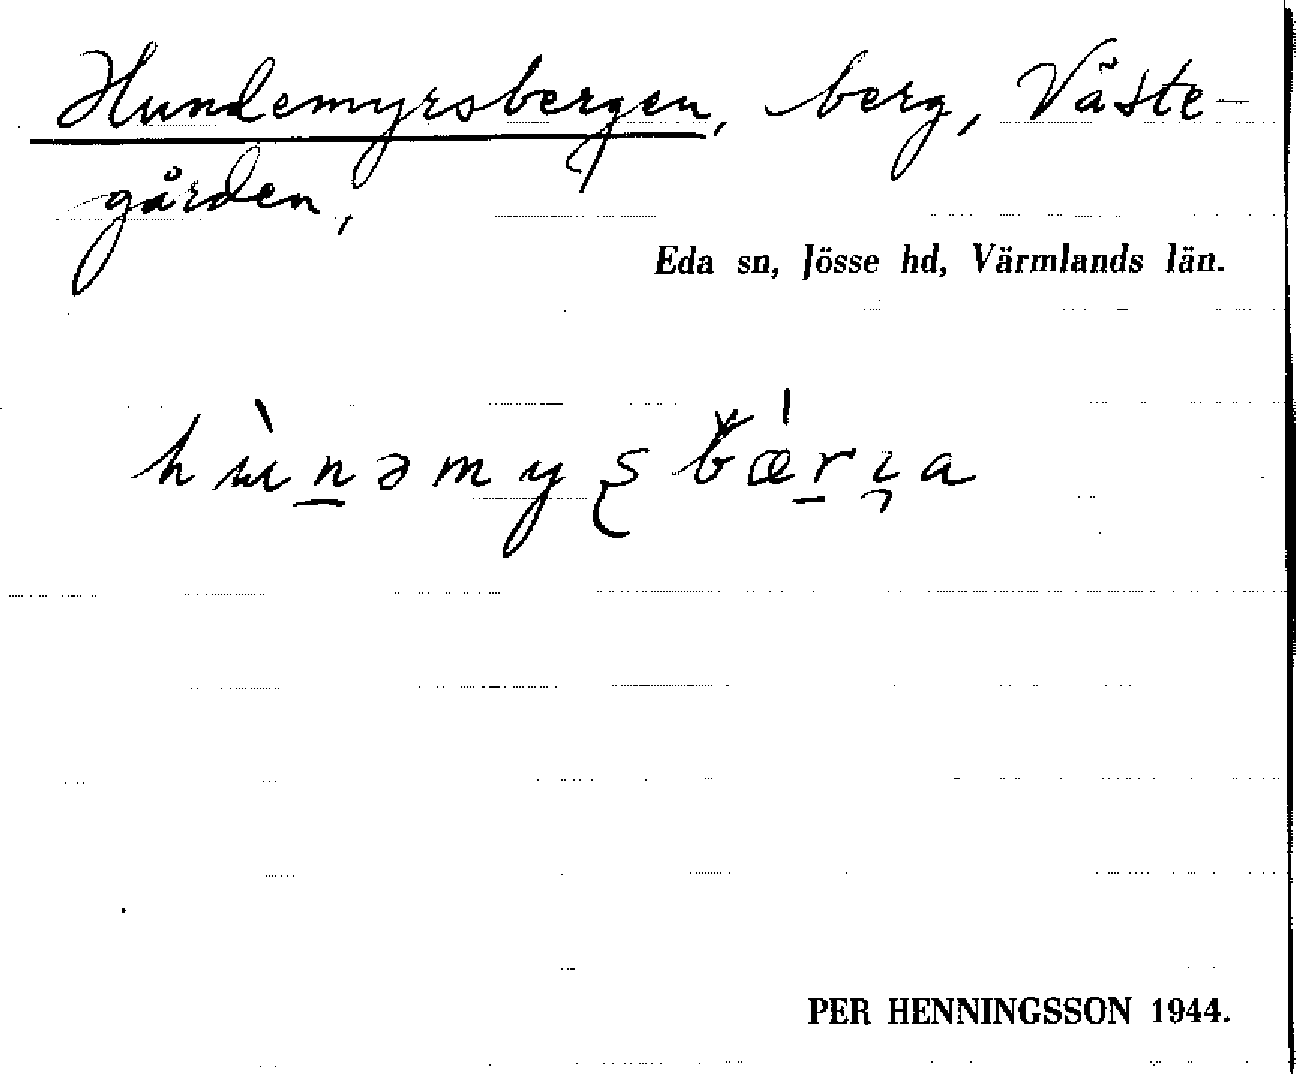 Hundemyrsbergen, berg, Väste-
gården,
Eda sn, Jösse hd, Värmlands län.
PER HENNINGSSON 1944.